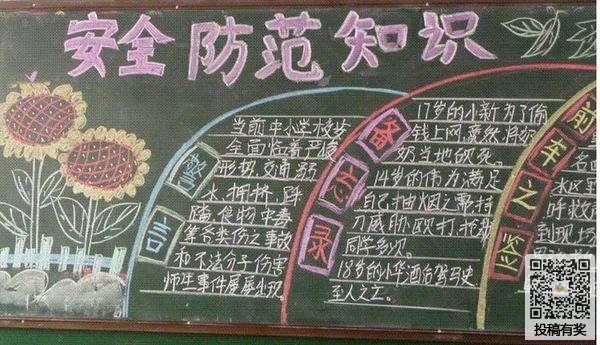 安全防范知识
警言
当前中小学校安
全面临着严峻
形势,交通,溺
水,拥挤,
食物中毒
等各类伤亡事故
和不法分子伤害
师生事件屡屡出现。
备忘录
17岁的小新为了偷
钱上网,竟然将奶
奶当地砍死。
14岁的伟为满足
自己抽烟
刀威胁殴打抢
同学
18岁的小华酒后驾马
至人
前车之鉴
呼救
到现场
投稿有奖